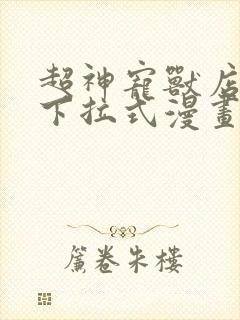 超神寵獸店
下拉式漫畫
簾卷朱樓